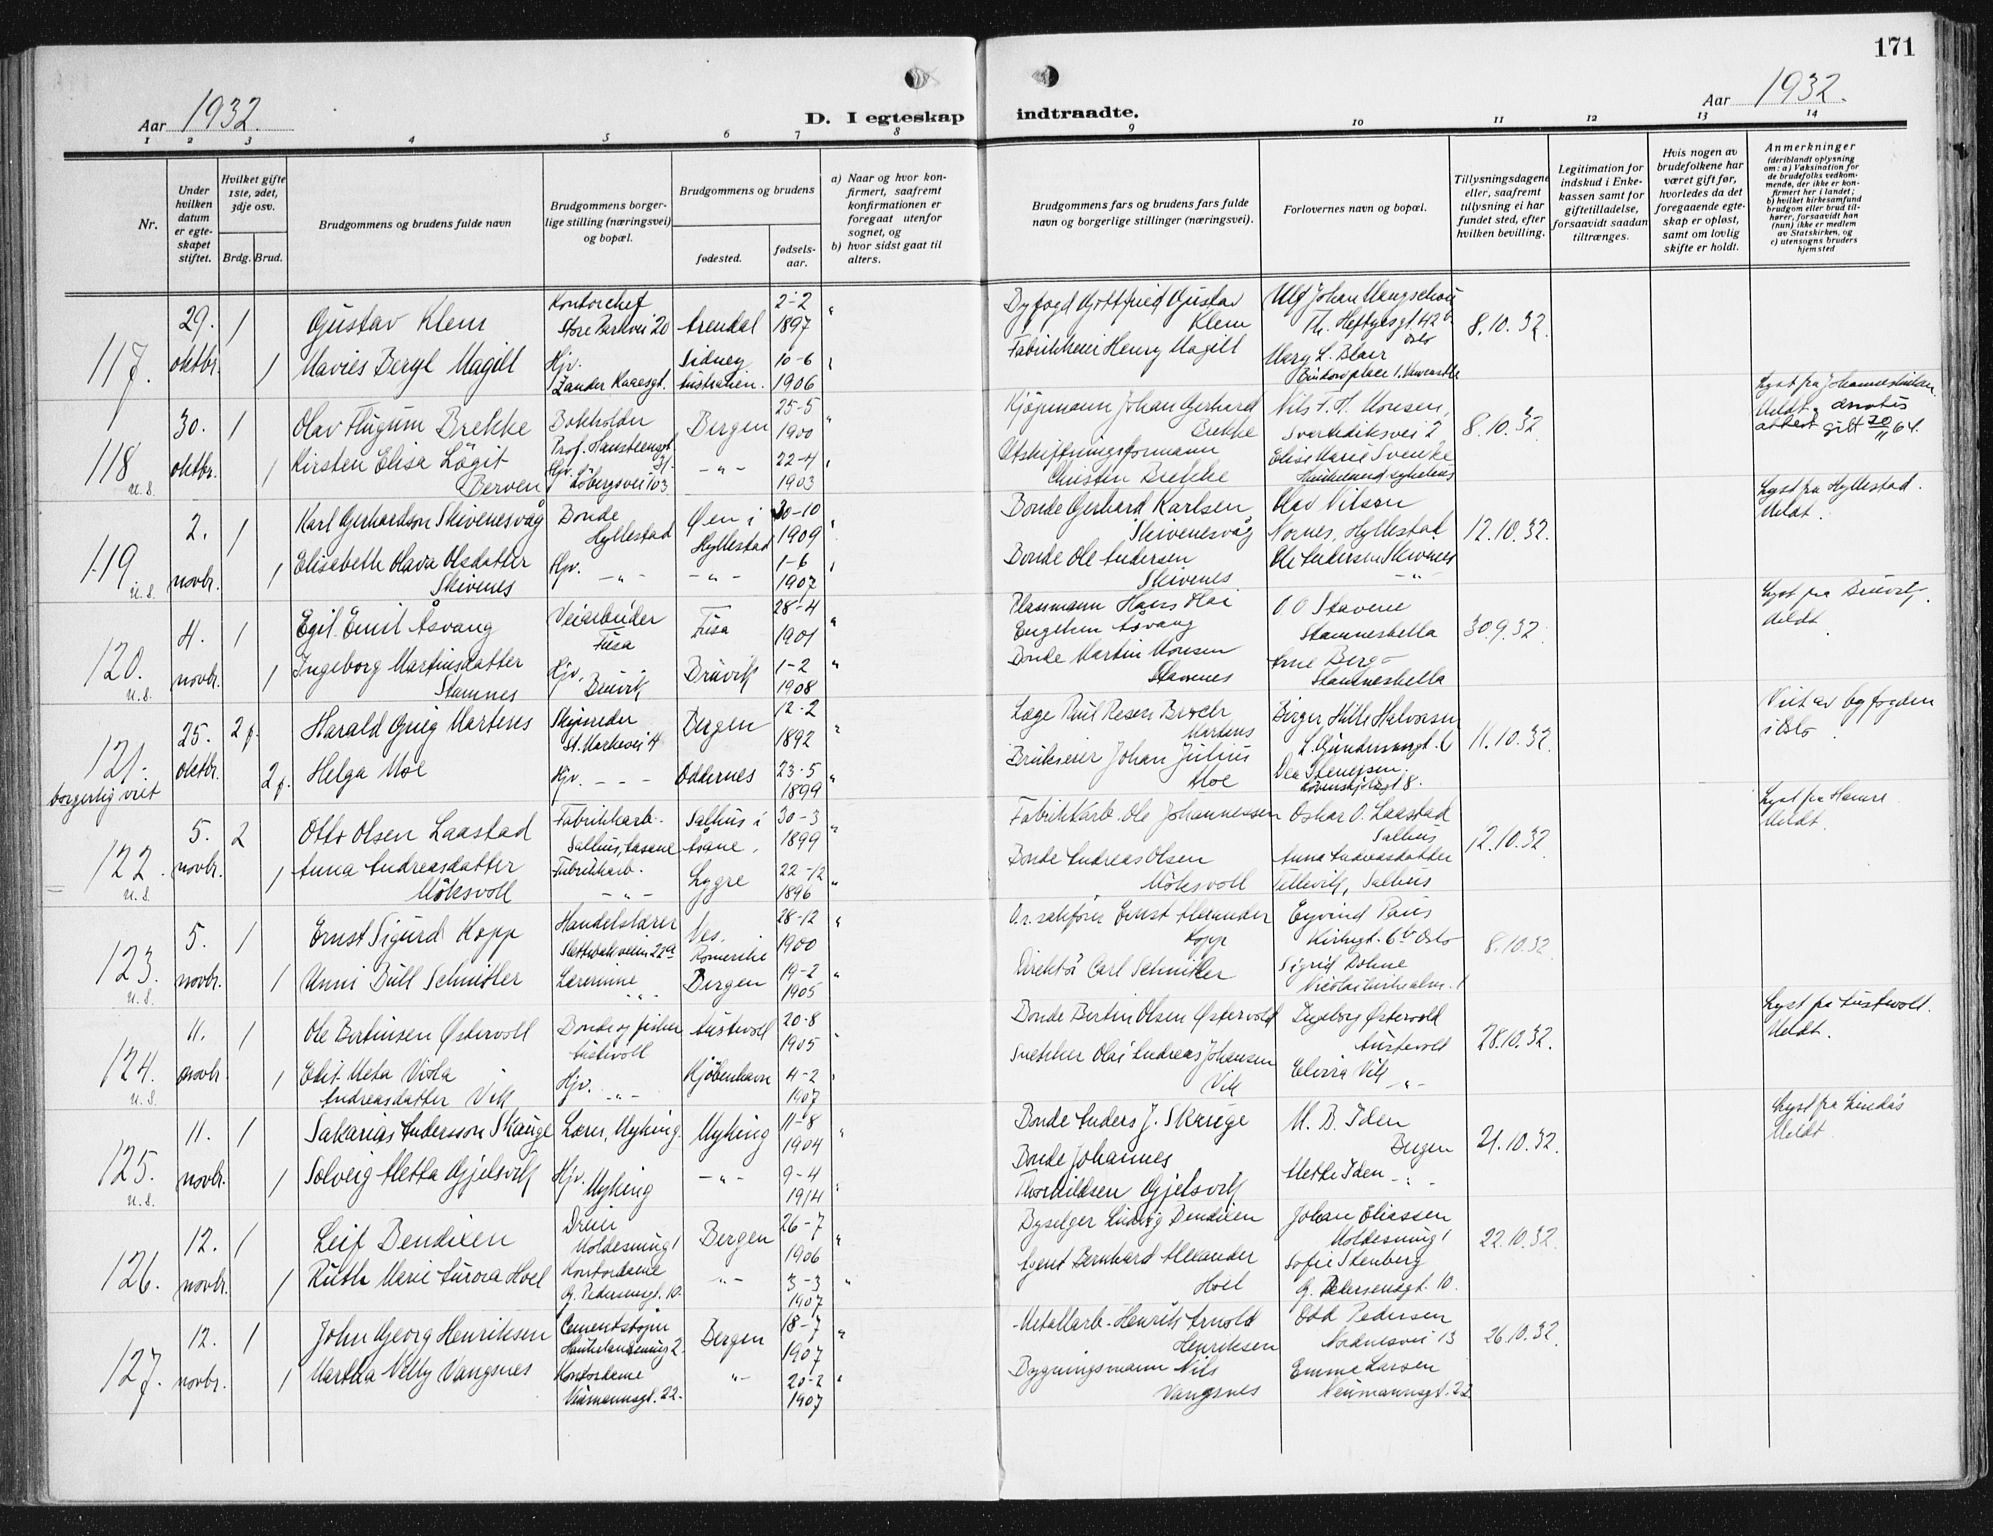 171
Aar 1932.
D. I egteskap indtraadte.
Aar 1932.
1 2 3 4 5 6 7 8 9 10 11 12 13 14
Nr.
Under hvilken datum er egteskapet stiftet.
Hvilket gifte 1ste, 2det, 3dje osv.
Brdg. Brud.
Brudgommens og brudens fulde navn
Brudgommens borgerlige stilling (næringsvei) og bopæl.
Brudgommens og brudens
fødested.
fødselsaar.
a) Naar og hvor konfirmert, saafremt konfirmationen er foregaat utenfor sognet, og
b) hvor sidst gaat til alters.
Brudgommens fars og brudens fars fulde navn og borgerlige stillinger (næringsvei).
Forlovernes navn og bopæl.
Tillysningsdagene eller, saafremt tillysning ei har fundet sted, efter hvilken bevilling.
Legitimation for indskud i Enkekassen samt for giftetilladelse, forsaavidt saadan tiltrænges.
Hvis nogen av brudefolkene har været gift før, hvorledes da det foregaaende egteskap er opløst, samt om lovlig skifte er holdt.
Anmerkninger
(deriblandt oplysning om: a) Vaksination for de brudefolks vedkommende, der ikke er konfirmert her i landet; b) hvilket kirkesamfund brudgom eller brud tilhører, forsaavidt han (hun) ikke er medlem av Statskirken, og c) utensogns bruders hjemsted
117. 29. oktbr. 1 Gustav Klem Kontorchef Store Parkvei 20 Arendal 2-2 1897 Byfogd Gottfried Gustav Klem Th. Heftyesgt. 42 b Oslo 8.10.32.
1 Mavies Beryl Magill Hjv. Zander Kaaesgt. Sidney Australien. 10-6 1906 Fabrikkeier Henry Magill Mary L. Blair
118 u.s. 30. oktbr. 1 Olav Flugum Brekke Bokholder Prof. Hansteensgt. 31. Bergen 25-5 1900 Kjøpmann Johan Gerhard Brekke Nils S. H. Monsen, Svartediksvei 2 8.10.32. Meldt. attest gitt 30/11 64.
1 Kirsten Elisa Lögit Berven Hjv. Löbergsvei 103 -"- 22-4 1903 Utskiftningsformann Christen Brekke Elise Marie Svenke Haukeland sykehus
119 u.s. 2. novbr. 1 Karl Gerhardson Skivenesvåg Bonde Hyllestad Øen i Hyllestad 20-10 1909 Bonde Gerhard Karlsen Skivenesvåg Olav Nilsen Nornes, Hyllestad 12.10.32. Lyst fra Hyllestad. Meldt.
1 Elisabeth Olava Olsdatter Skivenes Hjv. -"- -"- 1-6 1907 Bonde Ole Andersen Skivenes Ole Andersen Skivenes -"-
120. u.s. 4. novbr. 1 Egil Emil Åsvang Veiarbeider Fusa Fusa 28-4 1901 Plassmann Hans Kai Engelhen Åsvang O O Stavene Stamneshella 30.9.32. Lyst fra Bruvik. Meldt.
1 Ingeborg Martinsdatter Stamnes Hjv. Bruvik Bruvik 1-2 1908 Bonde Martin Monsen Stamnes Arne Berg Stamneshella
121. borgerlig viet 25. oktbr. 2 f. Harald Grieg Martens Skipsreder St. Markevei 4 Bergen 12-2 1892 Læge Paul Resen Broch Martens Birger Hille Halvorsen L. Gundersensgt. 6 11.10.32. Viet av byfogden i Oslo.
2 f. Helga Moe Hjv. - - - Oddernes 23-5 1899 Brukseier Johan Julius Moe Dea Stenersen Lövenskjoldsgt 8.
122. u.s. 5. novbr. 2 Otto Olsen Laastad Fabrikkarb. Salhus, Aasane Salhus i Åsane. 30-3 1899 Fabrikkarb. Ole Johannessen Oskar O. Laastad Salhus 12.10.32. Lyst fra Hamre Meldt.
1 Anna Andreasdatter Möksvoll Fabrikkarb. -"- Lygre 22-12 1896 Bonde Andreas Olsen Möksvoll Anna Andreasdatter Tellevik, Salhus
123. u.s. 5. novbr. 1 Ernst Sigurd Kopp Handelslærer Slettebakveien 22a Nes. Romerike 28-12 1900 O.r.sakfører Ernst Alexander Kopp Eyvind Paus Kirkegt. 6b Oslo 8.10.32.
1 Unni Bull Schnitler Lærerinne -"- Bergen 19-2 1905 Direktör Carl Schnitler Sigrid Döhne
124. u.s. 11. novbr. 1 Ole Bertinsen Östervoll Bonde og fisker Austevoll Austevoll 20-8 1905 Bonde Bertin Olsen Östervold Ingeborg Östervold Austevold 28.10.32. Lyst fra Austevoll. Meldt.
1 Edit Meta Viola Andreasdatter Vik Hjv. -"- Kjöbenhavn 4-2 1907 Snekker Olai Andreas Johansen Vik Elvira Vik -"-
125. u.s. 11. novbr. 1 Sakarias Andersson Skauge Lærer, Myking. Myking 11-8 1904 Bonde Anders J. Skauge M. B. Iden Bergen 21.10.32. Lyst fra Lindås Meldt.
1 Solveig Metta Gjelsvik Hjv. Myking -"- 9-4 1914 Bonde Johannes Thorkildsen Gjelsvik Mette Iden -"-
126. 12. novbr. 1 Leif Bendixen Dreier Moldesmug 1 Bergen 26-7 1906 Byselger Ludvig Bendixen Johan Eliassen Moldesmug 1 22.10.32.
1 Ruth Marie Aurora Hoel Kontordame G. Pedersensgt. 10. -"- 3-3 1907 Agent Bernhard Alexander Hoel Sofie Stenberg G. Pedersensgt. 10.
127. 12. novbr. 1 John Georg Henriksen Cementstøper Haukelandsmug 2. Bergen 18-7 1907 Metallarb. Henrik Arnold Henriksen Odd Pedersen Nordnesvei 13 26.10.32.
1 Martha Nelly Vangsnes Kontordame Neumannsgt. 22. -"- 20-2 1907 Bygningsmann Nils Vangsnes Emma Larsen Neumannsgt. 22